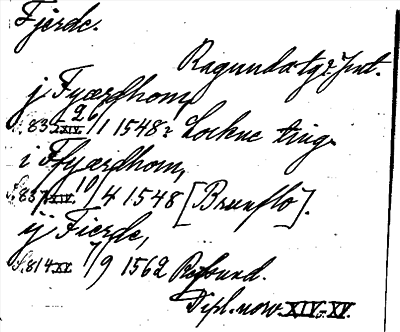 Fjerde.
Ragunda tg, Jmt.
j Fyærdhom,
S. 835 XIV. 26/1 1548 Lockne ting.
i Ffyærdhom,
S. 837 XIV. 10/4 1548 [Brunflo].
ij Fierde,
S. 814 XV. 7/9 1562 Refsund.
Dipl. norv. XIV. o. XV.